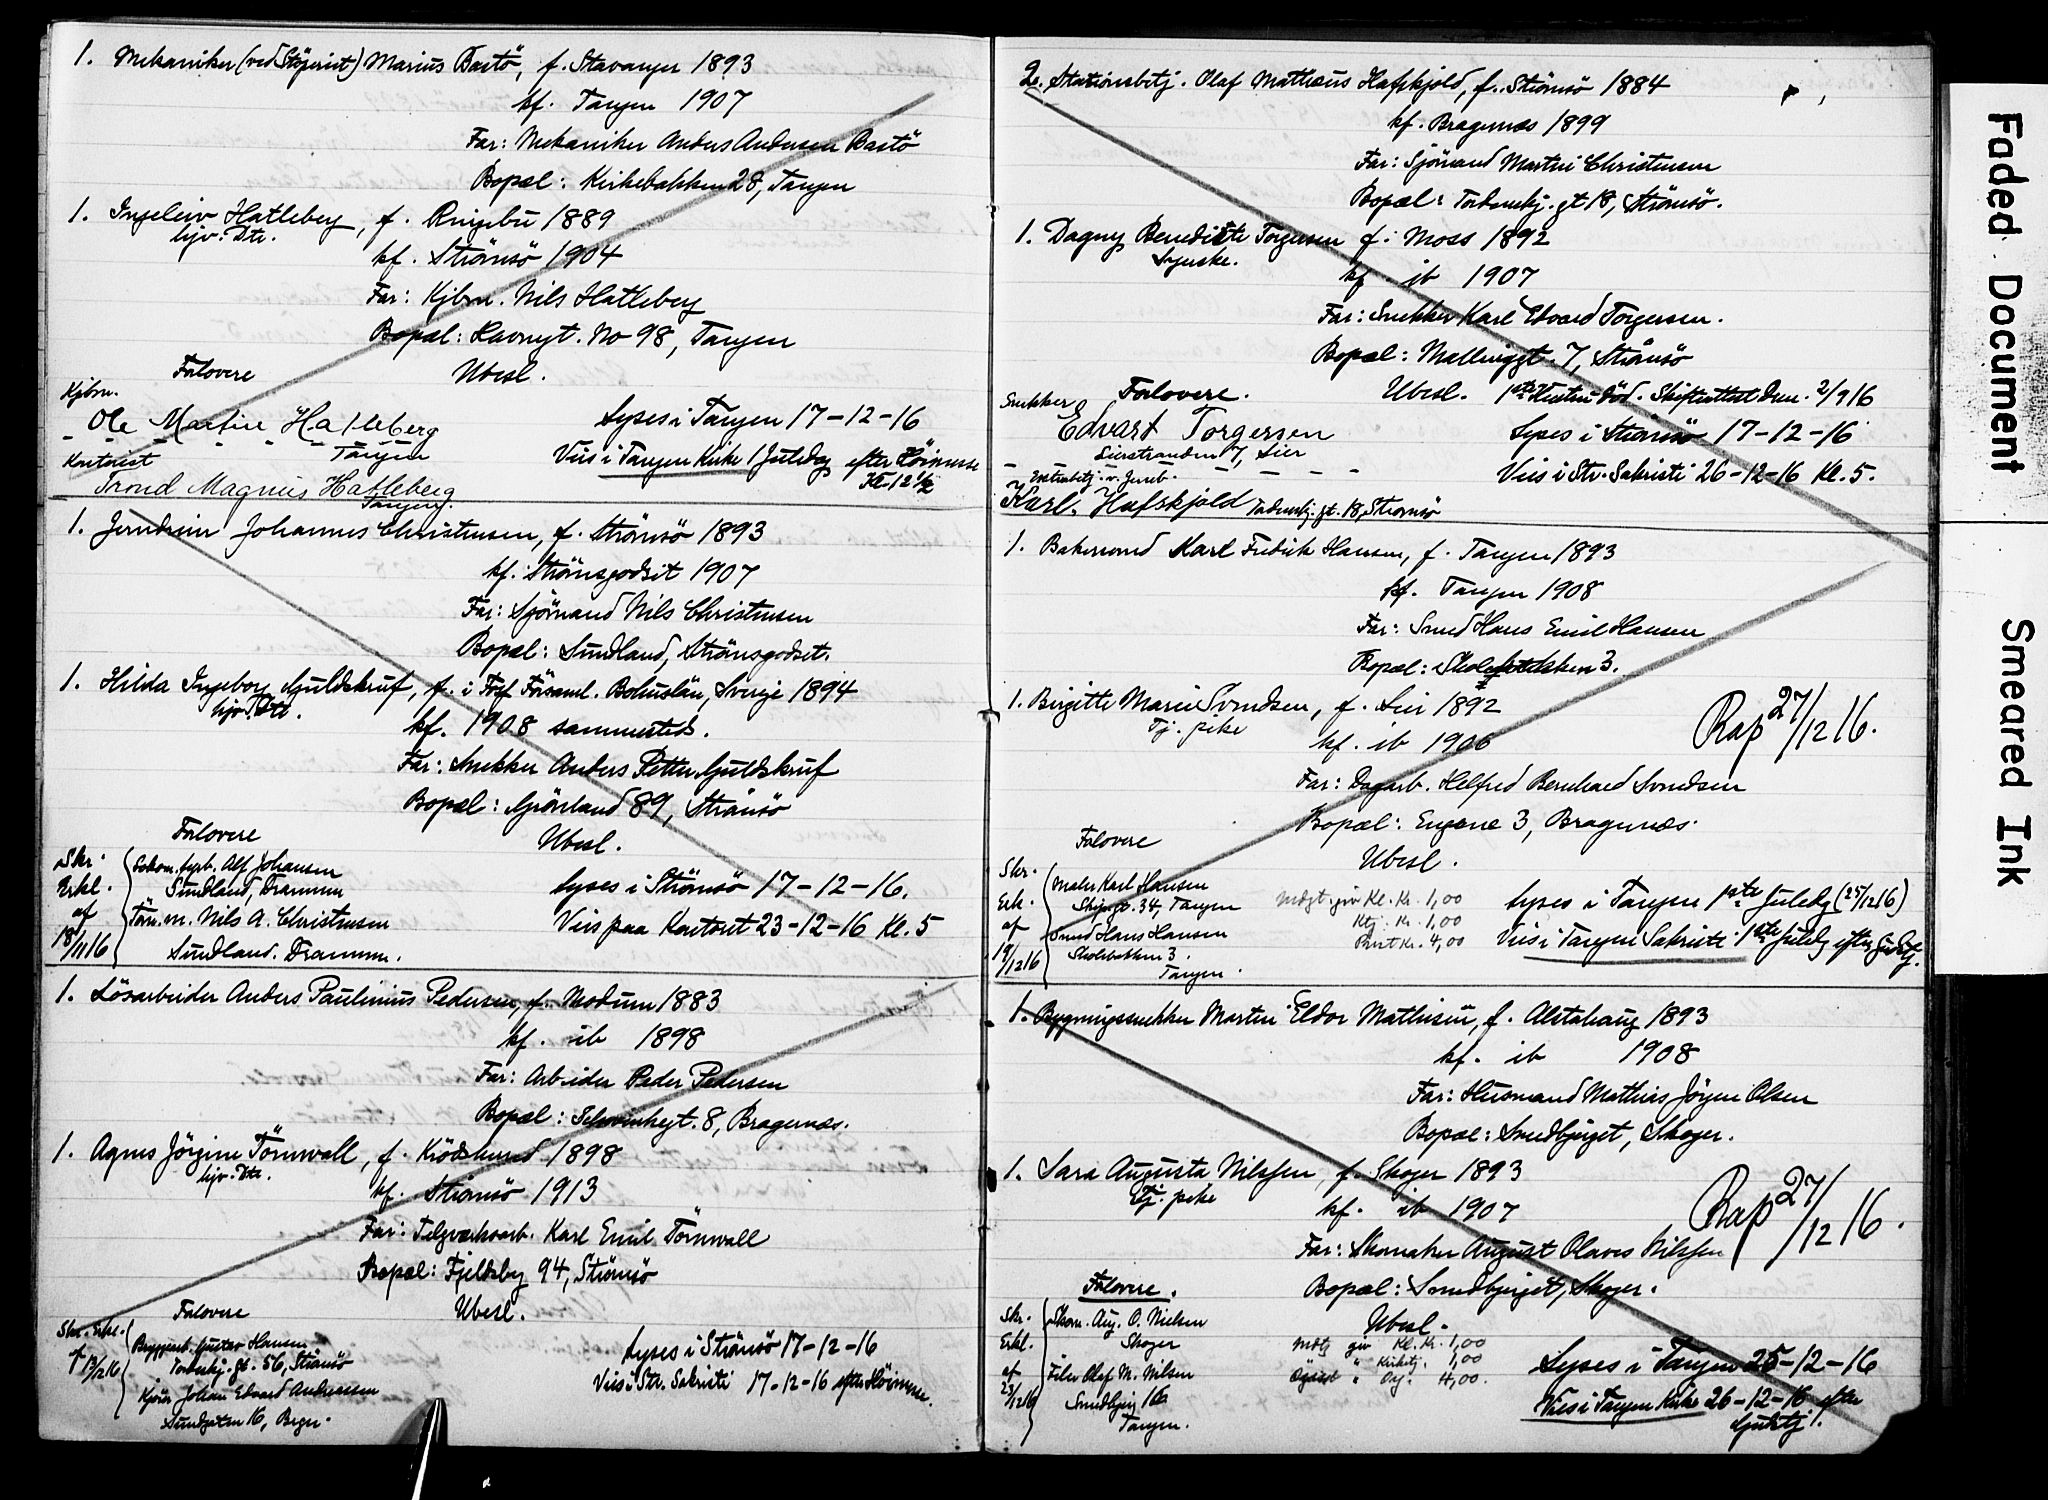 1. Mekaniker (ved Støperiet) Marius Bastö, f. Stavanger 1893
kf. Tangen 1907
Far: Mekaniker Anders Andersen Bastö
Bopæl: Kirkebakken 28, Tangen
1. Ingeleiv Hatleberg, f. Ringebu 1889
hjv. Dtr.
kf. Strömsö 1904
Far: Kjbm. Nils Hatleberg
Bopæl: Havnegt. No 98, Tangen
Forlovere Ubesl.
Kjbm.
Ole Martin Hatleberg Lyses i Tangen 17-12-16
Tangen
Kontorist Vies i Tangen Kirke 1 Juledag efter Höimesse
Kl. 12 1/2
Trond Magnus Hatleberg
Tangen.
1. Jerndreier Johannes Christensen, f. Strömsö 1893
kf. Strömsgodset 1907
Far: Sjömand Nils Christensen
Bopæl: Sundland, Strömsgodset.
1. Hilda Ingeborg Guldskruf, f. i Församl. Bohuslän, Sverige 1894
hjv. Dtr.
kf. 1908 sammesteds.
Far: Snekker Anders Petter Guldskruf
Bopæl: Grönland 89, Strömsö
Forlovere Ubesl.
Skr. Lokom. fyrb. Alf Johansen
Erkl. Sundland, Drammen Lyses i Strömsö 17-12-16.
af Töm.m. Nils A. Christensen Vies paa Kontoret 23-12-16 Kl. 5
18/11 16 Sundland. Drammen.
1. Lösarbeider Anders Paulinius Pedersen, f. Modum 1883
kf. ib 1898
Far: Arbeider Peder Pedersen
Bopæl: Schwenkegt. 8, Bragernæs.
1. Agnes Jörgine Törnwall, f. Krödsherred 1898
hjv. Dtr.
kf. Strömsö 1913
Far: Telgværksarb. Karl Emil Törnwall
Bopæl: Fjeldsby 94, Strömsö
Forlovere Ubesl.
Skr. Erkl. Bryggearb. Gustav Hansen
f 13/12 16 Tordenskj. gt. 56, Strömsö Lyses i Strömsö 17-12-16
Kjører Johan Edvard Andreassen Vies i Str. Sakristi 17-12-16 efter Höimesse.
Sundgaten 16, Brgn.
2. Stationsbetj. Olaf Mathæus Hafskjold, f. Strömsö 1884
kf. Bragernæs 1899
Far: Sjömand Martin Christensen
Bopæl: Tordenskj. gt 18, Strömsö.
1. Dagny Benedicte Torgersen f. Moss 1892
Syerske.
kf. ib 1907
Far: Snekker Karl Edvard Torgersen.
Bopæl: Mallinggt. 7, Strömsö
Forlovere. Ubesl. 1ste Hustru död. Skifteattest Dmn. 2/9 16
Snekker
Edvart Torgersen Lyses i Strömsö 17-12-16
Lierstranden 7, Lier
Vies i Str. Sakristi 26-12-16 Kl. 5.
Karl Hafskjold Tordenskj. gt. 18, Strömsö
1. Bakersvend Karl Fredrik Hansen, f. Tangen 1893
kf. Tangen 1908
Far: Smed Hans Emil Hansen
Bopæl: Skolebakken 3.
1. Birgitte Marie Svendsen, f. Lier 1892
Tj. pike
kf. ib 1906
Rap 27/12 16.
Far: Dagarb. Helfred Bernhard Svendsen
Bopæl: Engene 3, Bragernæs.
Forlovere Ubesl.
Skr. Maler Karl Hansen
Erk. Skipsgt. 34, Tangen Mdgt. giv. Kl. Kr. 1,00 Lyses i Tangen 1ste Juledg (25/12 16)
af Smed Hans Hansen Ktj. Kr. 1,00
Prest Kr. 4,00 Vies i Tangen Sakristi 1ste Juledg efter Gudstj.
19/12 16 Skolebakken 3.
Tangen.
1. Bygningssnekker Martin Eldor Mathisen, f. Alstahaug 1893
kf. ib 1908
Far: Husmand Mathias Jörgen Olsen
Bopæl: Smedbjerget, Skoger.
1. Sara Augusta Nilssen, f. Skoger 1893
Tj. pike
kf. ib 1907
Rap 27/12 16.
Far: Skomaker August Olaves Nilssen
Bopæl: Smedbjerget, Skoger.
Forlovere. Ubesl.
Skr. Skom. Aug. O. Nielsen
Erkl. Skoger Mdtg giv Kl. Kr. 1,00
af Filer Olaf M. Nilsen " Kirketj. 1,00 Lyses i Tangen 25-12-16
" Org. 4,00.
23/12 16 Smedbjerg 16 Vies i Tangen Kirke 26-12-16 efter
Tangen. Gudstj.
Faded Document
Smeared Ink